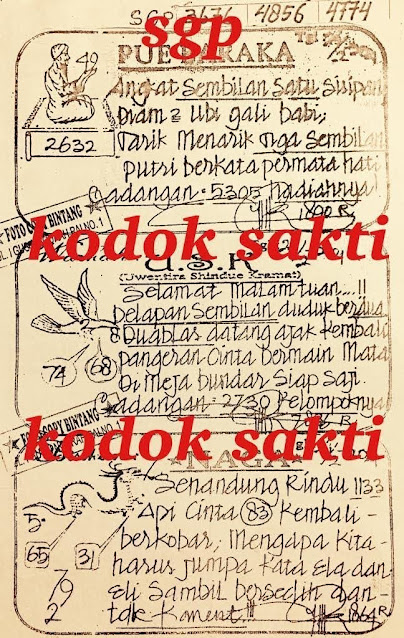 SGP 2676 4856 4774
sgp
PUE BARAKA
49
Angkat Sembilan Satu Sisipan
Diam 2 Ubi gali babi,
2632
Tarik Menarik Tiga Sembilan
putri berkata permata hati
Cadangan : 5305 hadiahnya
1800 R
FOTO COPY BINTANG
kodok sakti
U.S.K
(Uwentira Shindue Kramat)
Selamat Malam tuan....!!
Delapan Sembilan duduk berdua
Duablas datang ajak Kembali
pangeran Cinta Bermain Mata
74 68
Di Meja bundar Siap Saji.
Cadangan : 2730 Pelompoknya
FOTOCOPY BINTANG
kodok sakti
NAGA
Senandung Rindu !! 33
Api Cinta 83 Kembali-
65 31
berkobar, Mengapa Kita-
harus jumpa Kata Ela dan
79
Eli Sambil bersedih dan-
2
1864 R